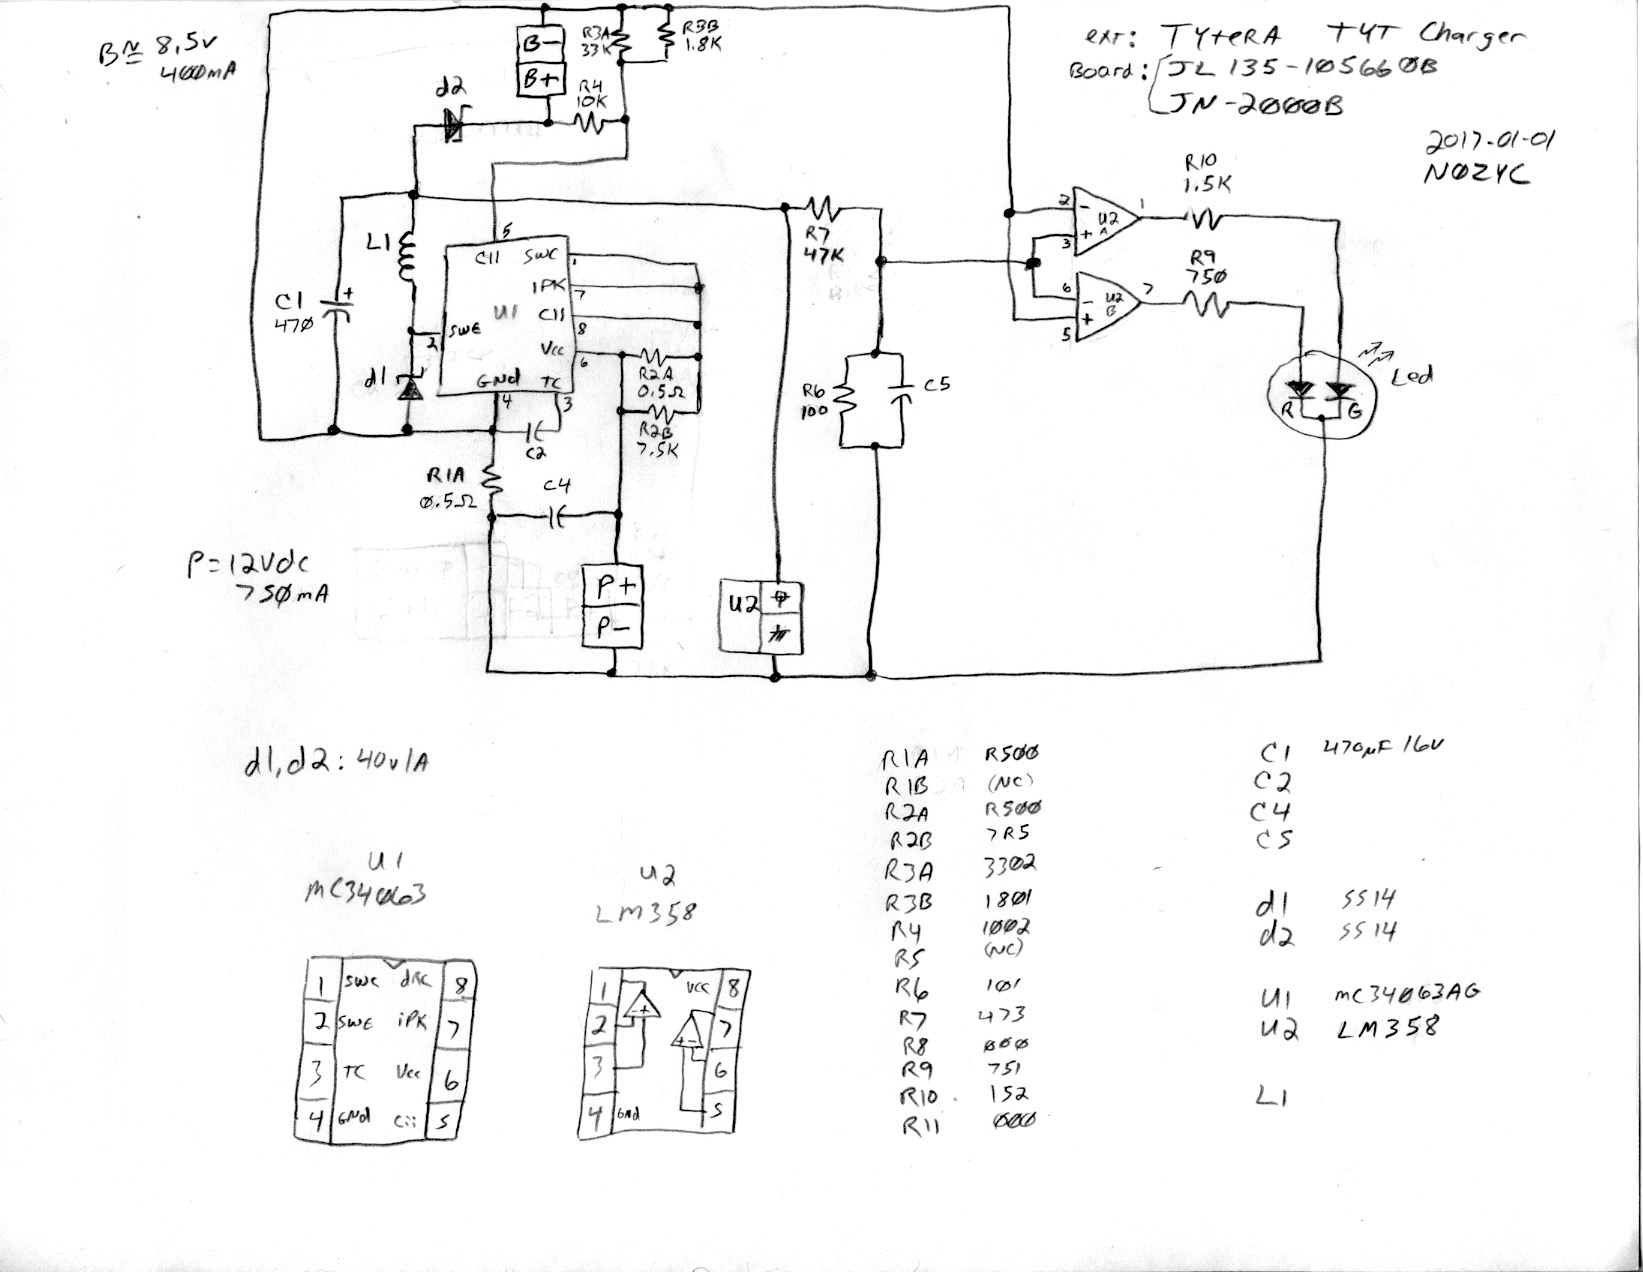 B≅ 8.5v
400mA
ext: TYteRA TYT Charger
Board: JL 135-105660B
JN-2000B
2017-01-01
N0ZYC
B-
B+
R3A
33K
R3B
1.8K
R4
10K
d2
L1
C1
470
+
d1
U1
5
C11 SWC
1
IPK
7
C11
8
VCC
6
SWE
2
GNd TC
4
3
C2
R2A
0.5Ω
R2B
7.5K
R1A
0.5Ω
C4
P=12Vdc
750mA
P+
P-
U2
R7
47K
R6
100
C5
2
-
+
3
U2
A
1
6
-
+
5
U2
B
7
R10
1.5K
R9
750
Led
R
G
d1,d2: 40v1A
U1
MC34063
1 SWC dRC 8
2 SWE iPK 7
3 TC Vcc 6
4 GNd Cii 5
U2
LM358
1 VCC 8
2 -+ 7
3 +- 6
4 GNd 5
R1A R500
R1B (NC)
R2A R500
R2B 7R5
R3A 3302
R3B 1801
R4 1002
R5 (NC)
R6 101
R7 473
R8 000
R9 751
R10 152
R11 000
C1 470µF 16V
C2
C4
C5
d1 SS14
d2 SS14
U1 MC34063AG
U2 LM358
L1